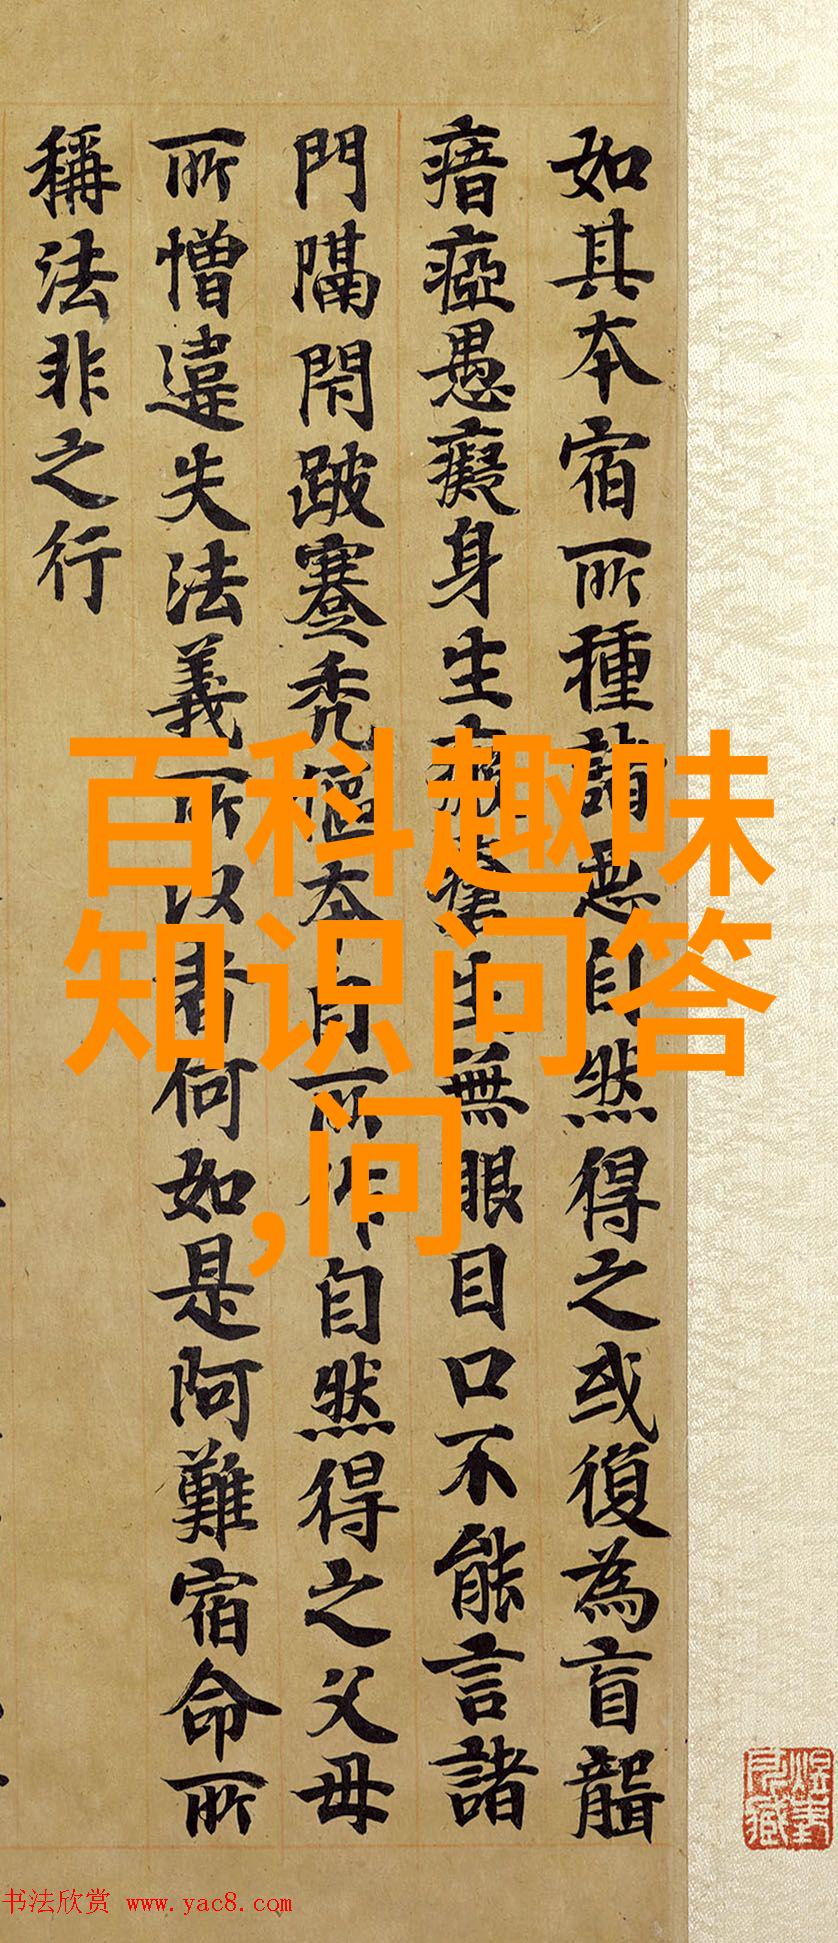 如其本宿所種諸惡自然得之或復為盲聾
瘖瘂愚癡身生生無眼目口不能言諸
門隔閇跛蹇禿傴本自所作自然得之父母
所憎違失法義所以者何如是阿難宿命所
稱法非之行
百科趣味
知识问答
,问
书法欣赏 www.yac8.com